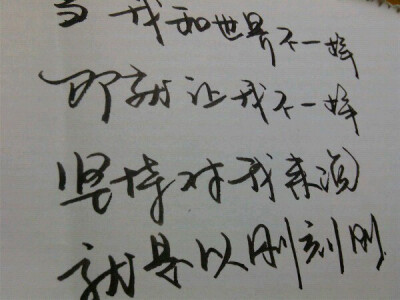 当我和世界不一样
那就让我不一样
坚持对我来说
就是以刚刻刚